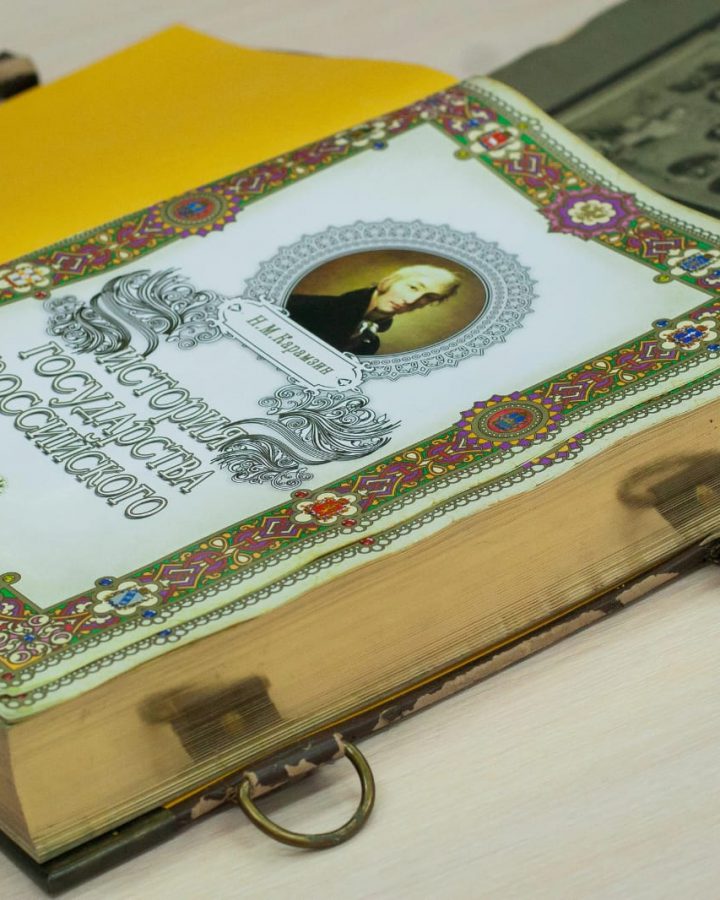 Н.М.Карамзин
ИСТОРИЯ
ГОСУДАРСТВА
РОССИЙСКОГО